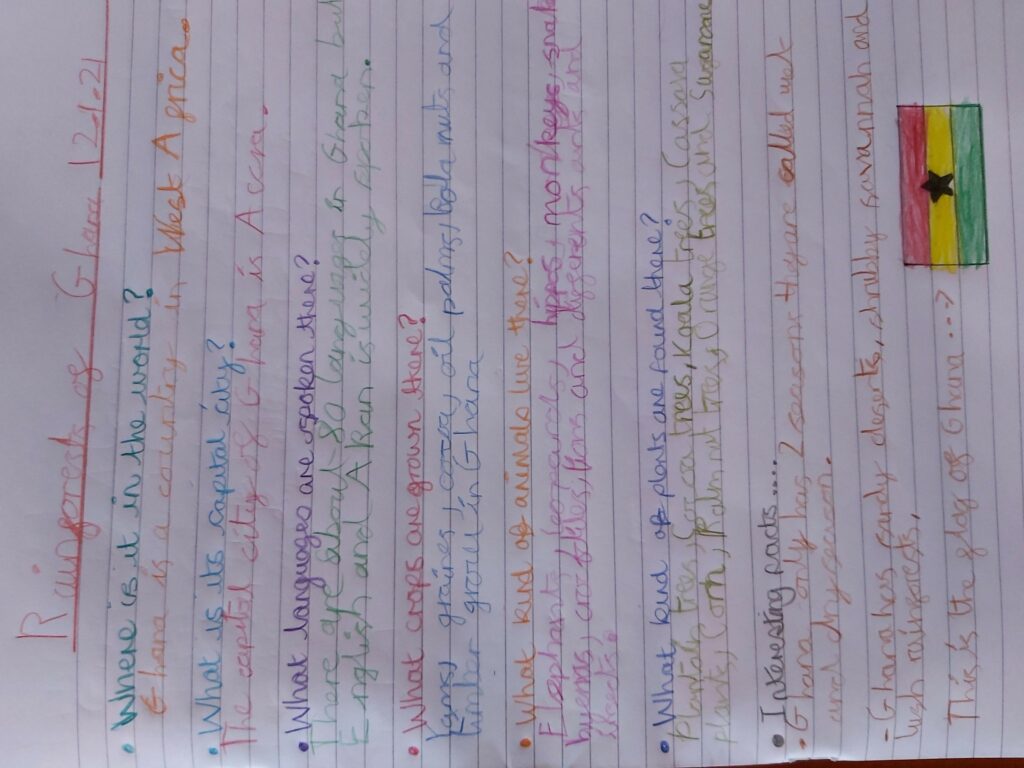 Rainforests of Ghana 12-1-21
• Where is it in the world?
Ghana is a country in West Africa.
• What is its capital city?
The capital city of Ghana is Accra.
• What languages are spoken there?
There are about 80 languages in Ghana but
English and Akan is widly spoken.
• What crops are grown there?
Yams, graines, cocoa, oil palms, kola nuts and
timber grow in Ghana
• What kind of animals live there?
Elephants, leopards, hipos, monkeys, snakes
hyenas, crocodiles, lions and differents birds and
• What kind of plants are found there?
Plantin trees, Cocoa trees, Koala trees, Cassava
plants, Corn, Palmnut trees, Orange trees and Sugarcane
• Interesting facts....
- Ghana only has 2 seasons they are called wet
and dry season.
- Ghana has sandy deserts, shrubby savannah and
lush rainforests.
This is the flag of Ghana --->